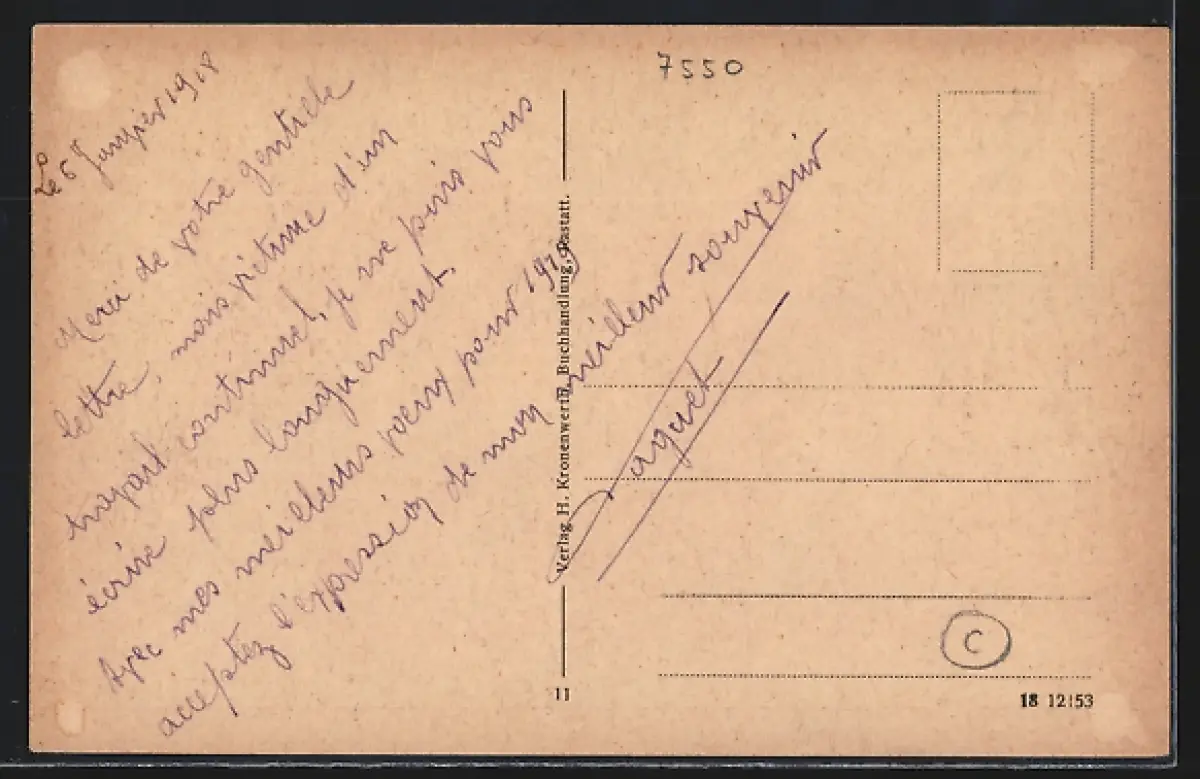 Le 6 Janvier 1918
Merci de votre gentille
lettre, mais victime d'un
travail continuel, je ne puis vous
écrire plus longuement.
Avec mes meilleurs voeux pour 1918
acceptez l'expression de mon meilleur souvenir
7550
Verlag H. Kronenwerth, Buchhandlung, Rastatt.
11
C
18 12153